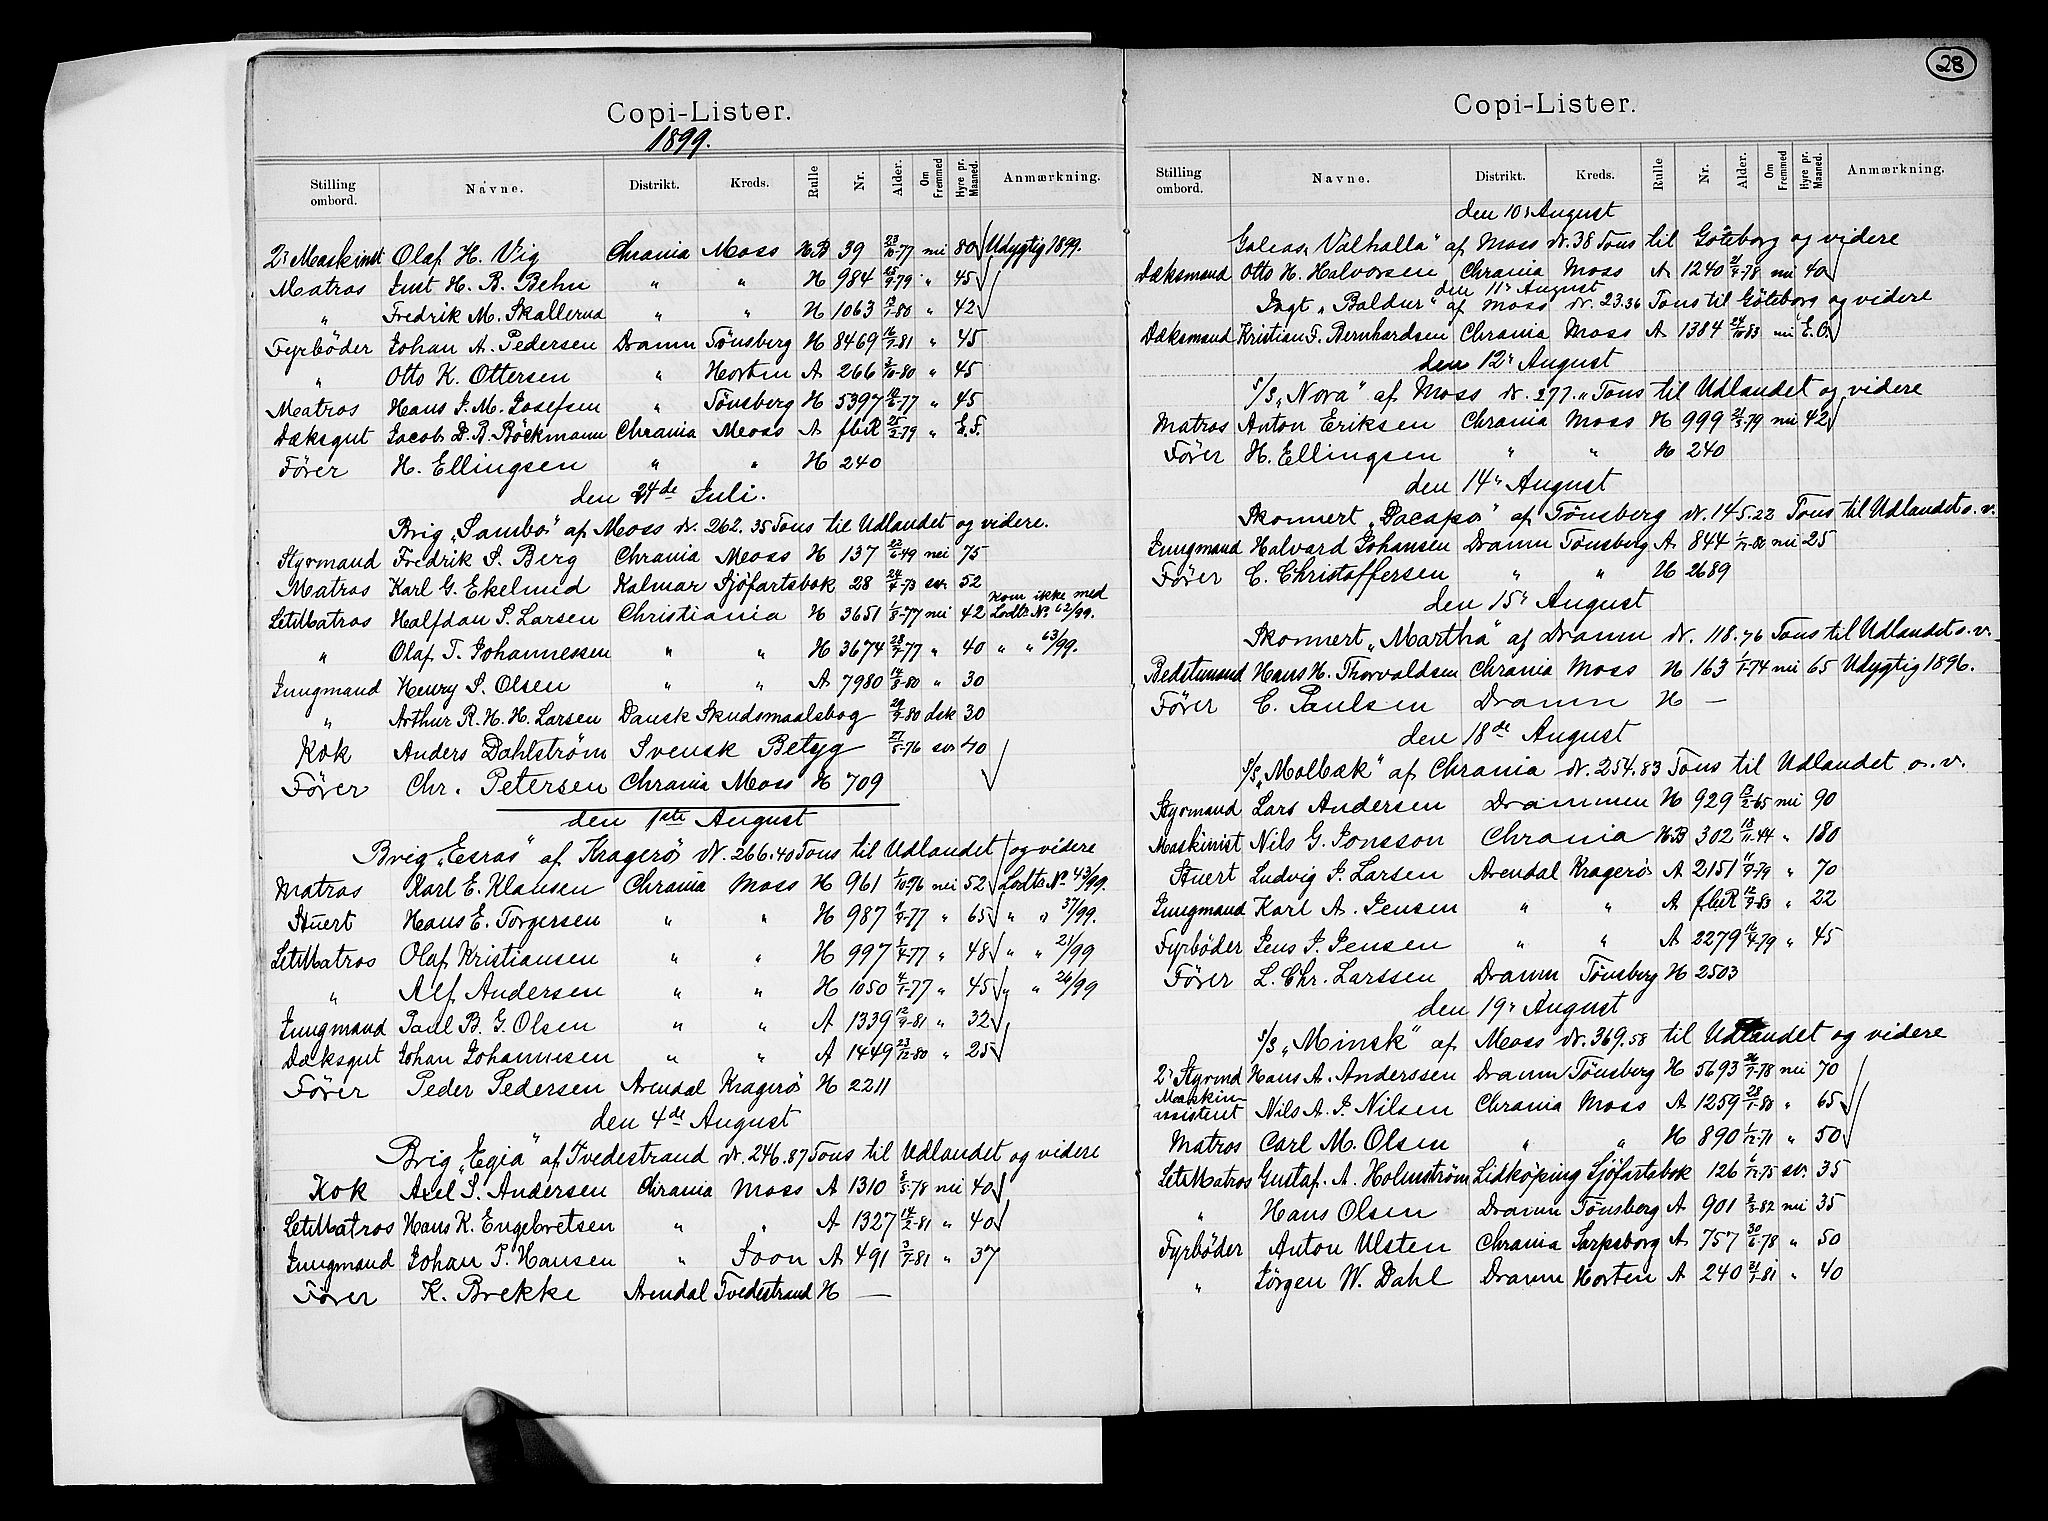 Copi-Lister.
1899.
Stilling ombord. Navne. Distrikt. Kreds. Rulle Nr. Alder. Om Fremmed Hyre pr. Maaned. Anmærkning.
2. Maskinst Olaf H. Vig Chrania Moss H.B 39 23/10-77 nei 80 Udygtig 1899.
Matros Just H. B. Behn " " H 984 25/9-79 " 45
" Fredrik M. Skallerud " " H 1063 -80 " 42
Fyrbøder Johan A. Pedersen Dramn Tönsberg H 8469 16/7-81 " 45
" Otto K. Ottersen " Horten A 266 3/10-80 " 45
Matros Hans J. M. Josefsen " Tönsberg H 5397 -77 " 45
Dæksgut Jacob D. B. Böckmann Chrania Moss A fbiR 25/2-79 " E.F.
Förer H. Ellingsen " " H 240
den 24de Juli.
Brig „Sambo" af Moss dr. 262.35 Tons til Udlandet og videre.
Styrmand Fredrik S. Berg Chrania Moss H 137 22/6-49 nei 75
Matros Karl G. Ekelund Kalmar Sjöfartsbok 28 24/4-73 sv. 52
LetMatros Halfdan S. Larsen Christiania H 3651 1/8-77 nei 42 kom ikke med Lodts. No 62/99.
" Olaf T. Johannessen " " H 3674 28/7-77 " 40 " " 63/99.
Jungmand Henry S. Olsen " " A 7980 14/8-80 " 30
" Arthur R. H. H. Larsen Dansk Skudsmaalsbog 29/9-80 dsk 30
Kok Anders Dahlström Svensk Betyg 27/5-76 sv. 40
Förer Chr. Petersen Chrania Moss H 709
den 1ste August
Brig „Esras" af Kragerö dr. 266.40 Tons til Udlandet og videre
Matros Karl E. Klausen Chrania Moss H 961 1/10-76 nei 52 Lodts No 43/99.
Stuert Hans E. Torgersen " " H 987 -77 " 65 " " 37/99.
LetMatros Olaf Kristiansen " " H 997 1/4-77 " 48 " " 21/99
" Alf Andersen " " H 1050 4/1-77 " 45 " " 26/99
Jungmand Paul B. G. Olsen " " A 1339 12/9-81 " 32
Dæksgut Johan Johannesen " " A 1449 23/12-80 " 25
Förer Peder Pedersen Arendal Kragerö H 2211
den 4de August
Brig „Egia" af Tvedestrand dr. 246.87 Tons til Udlandet og videre
Kok Axel S. Andersen Chrania Moss A 1310 8/5-78 nei 40
LetMatros Hans K. Engebretsen " " A 1327 14/2-81 " 40
Jungmand Johan P. Hansen " Soon A 491 3/7-81 " 37
Förer K. Brekke Arendal Tvedestrand H —
28
Copi-Lister.
Stilling ombord. Navne. Distrikt. Kreds. Rulle Nr. Alder. Om Fremmed Hyre pr. Maaned. Anmærkning.
den 10. August
Galeas „Valhalla" af Moss dr. 38 Tons til Göteborg og videre
Dæksmand Otto H. Halvorsen Chrania Moss A 1240 -78 nei 40
den 11. August
Jagt „Baldur" af Moss dr. 23.36 Tons til Göteborg og videre
Dæksmand Kristian F. Bernhardsen Chrania Moss A 1384 24/10-83 nei E.O.
den 12. August
S/S „Nora" af Moss dr. 277." Tons til Udlandet og videre
Matros Anton Eriksen Chrania Moss H 999 21/3-79 nei 42
Förer H. Ellingsen " " H 240
den 14. August
Skonnert „Dacapo" af Tönsberg dr. 145.22 Tons til Udlandet o. v.
Jungmand Halvard Johansen Dramn Tönsberg A 844 -80 nei 25
Förer C. Christoffersen " " H 2689
den 15. August
Skonnert „Martha" af Dramn dr. 118.76 Tons til Udlandet o. v.
Bedstmand Hans H. Thorvaldsen Chrania Moss H 163 1/1-74 nei 65 Udygtig 1896.
Förer C. Paulsen Dramn H —
den 18de August
S/S „Molbæk" af Chrania dr. 254.83 Tons til Udlandet o. v.
Styrmand Lars Andersen Drammen H 929 13/2-65 nei 90
Maskinist Nils G. Jonsson Chrania H.B 302 18/11-44 " 180
Stuert Ludvig S. Larsen Arendal Kragerö A 2151 -79 " 70
Jungmand Karl A. Jensen " " A fbiR 12/9-83 " 22
Fyrbøder Jens J. Jensen " " A 2279 16/4-79 " 45
Förer L. Chr. Larssen Dramn Tönsberg H 2503
den 19. August
S/S „Minsk" af Moss dr. 369.58 til Udlandet og videre
2. Styrmd Hans A. Anderssen Dramn Tönsberg H 5693 26/7-78 nei 70
Maskinassistent Nils A. J. Nilsen Chrania Moss A 1259 28/1-80 " 65
Matros Carl M. Olsen " " H 890 1/12-71 " 50
LetMatros Gustaf. A. Holmström Lidköping Sjöfartsbok 126 -75 sv. 35
" Hans Olsen Dramn Tönsberg A 901 2/3-82 nei 35
Fyrbøder Anton Ulsten Chrania Sarpsborg A 757 30/6-78 " 50
" Jörgen W. Dahl Dramn Horten A 240 21/1-81 " 40